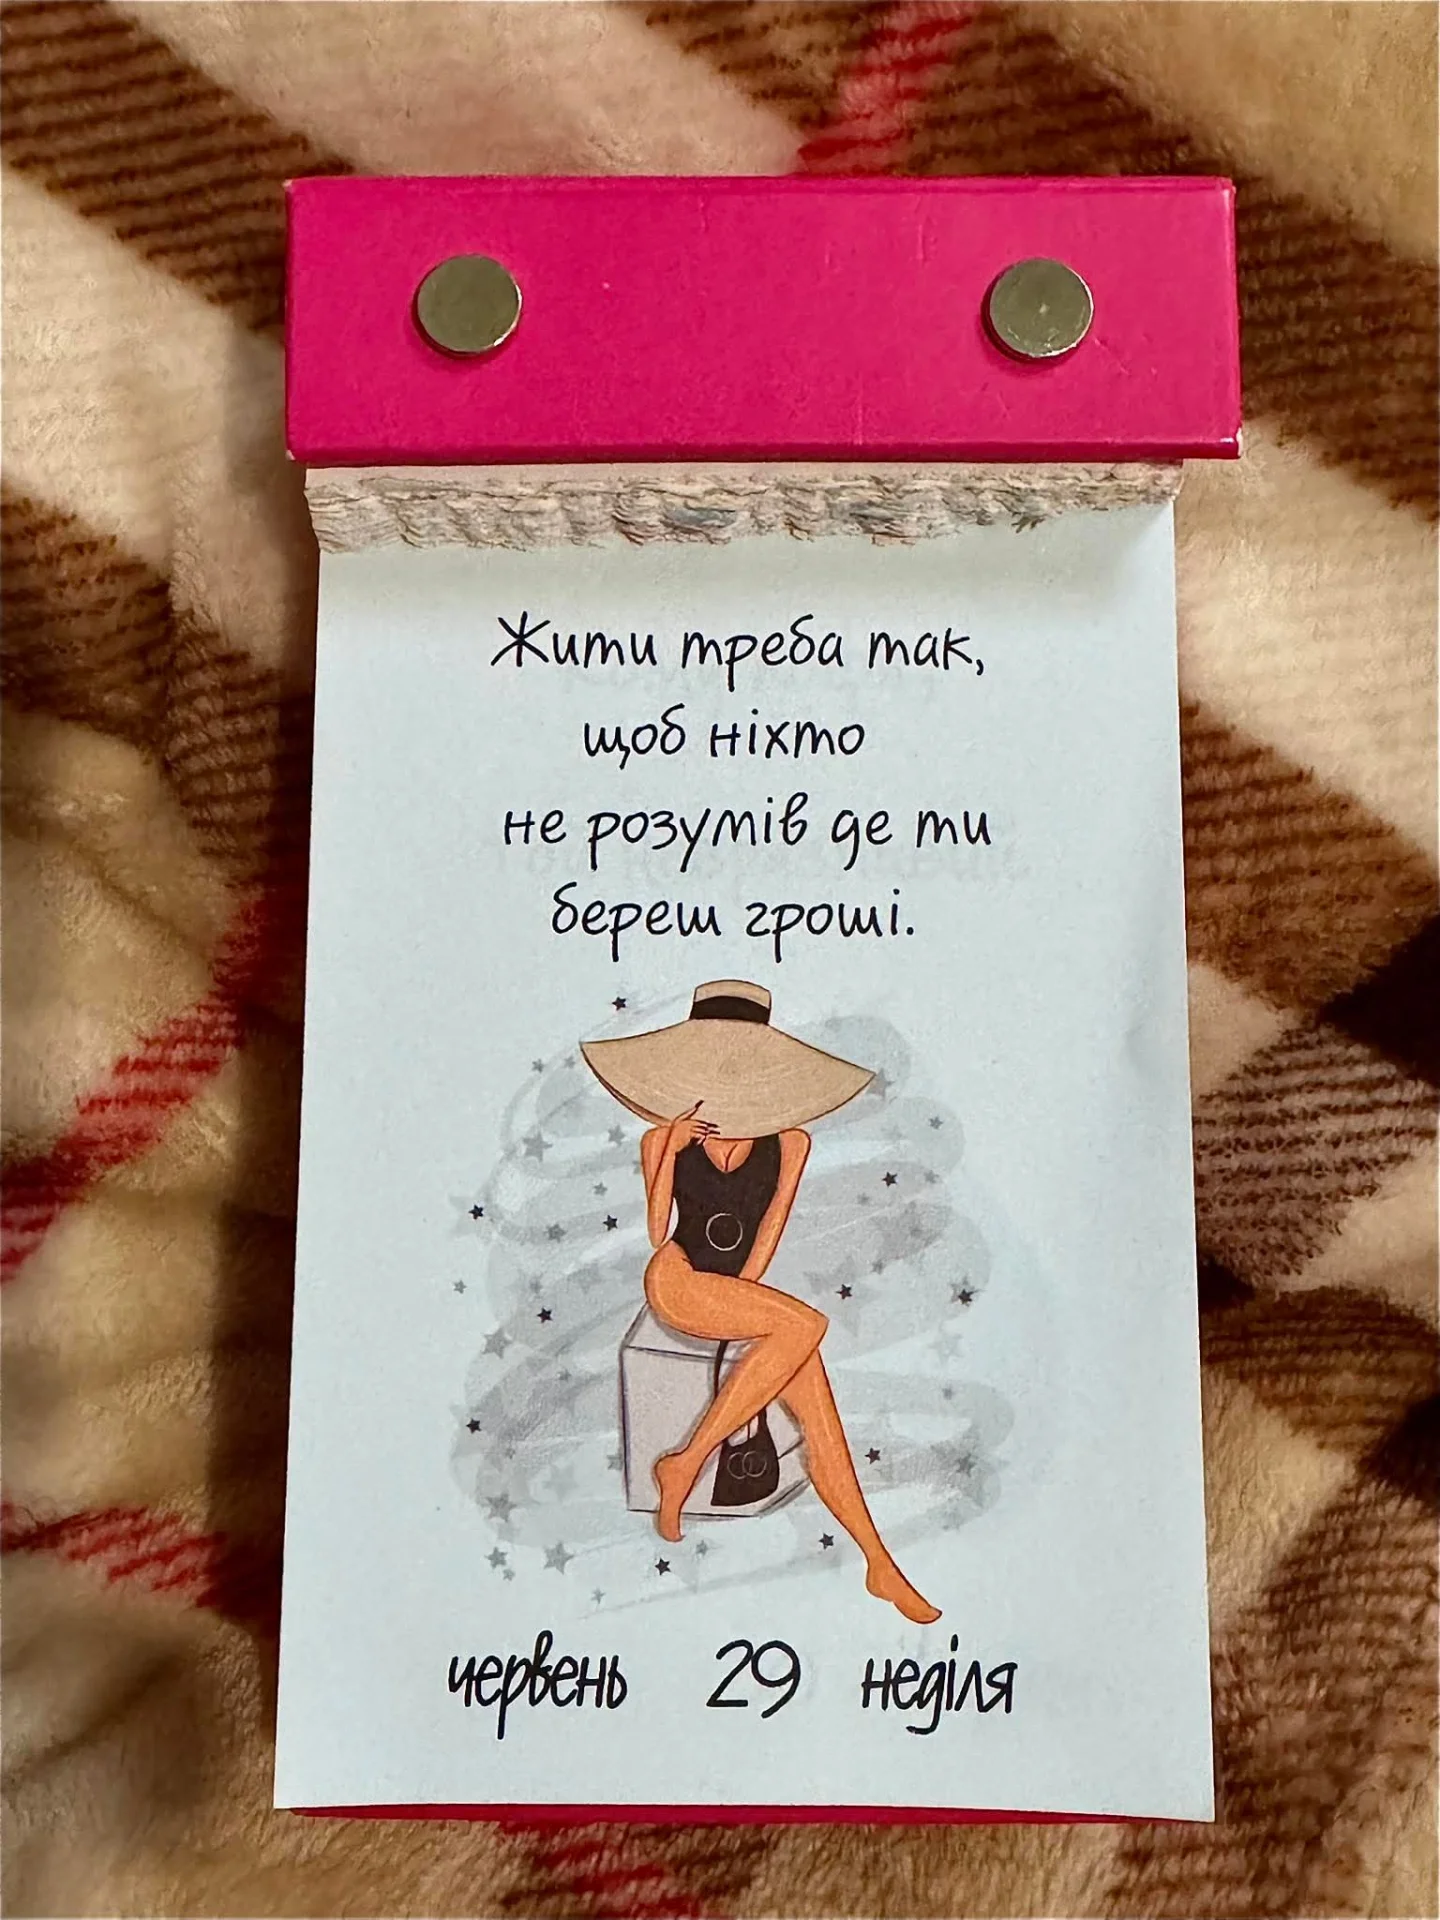 Жити треба так,
щоб ніхто
не розумів де ти
береш гроші.
червень 29 неділя